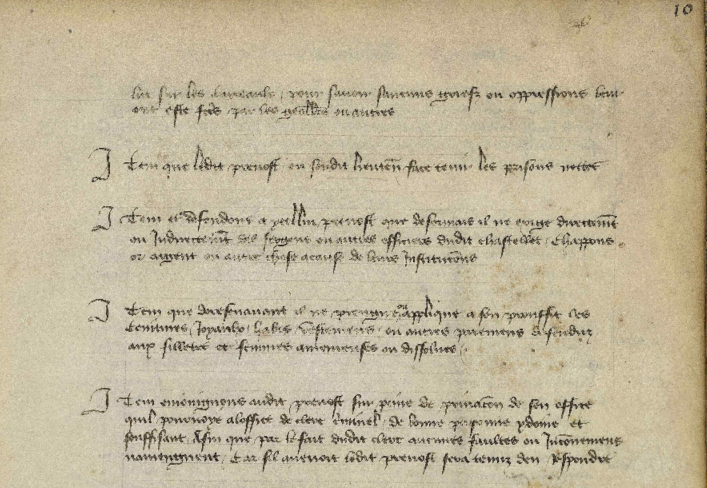 10
lui sur les quareaulx pour savoir saucuns griefz ou oppressions leur
ont este fais par les geolliers ou autres
Item que ledit prevost ou sondit lieuten face tenir les prisons nettes
Item et defendons a icellui prevost que desormais il ne exige directement
ou Indirectement des sergens ou autres officiers dudit chastellet Chappons
or argent ou autre chose a cause de leurs Institucions
Item que doresenavant il ne prengne ou applique a son prouffit les
ceintures Joyaulx habis vestemens ou autres paremens defenduz
aux fillettes et femmes amoureuses ou dissolues
Item enioignons audit prevost sur peine de privacion de son office
quil pourvoye aloffice de clerc criminel de bonne personne ydoine et
souffisant Afin que par le fait dudit clerc aucunes faultes ou Inconveniens
naviengnent Car sil avenoit ledit prevost sera tenuz den Respondre